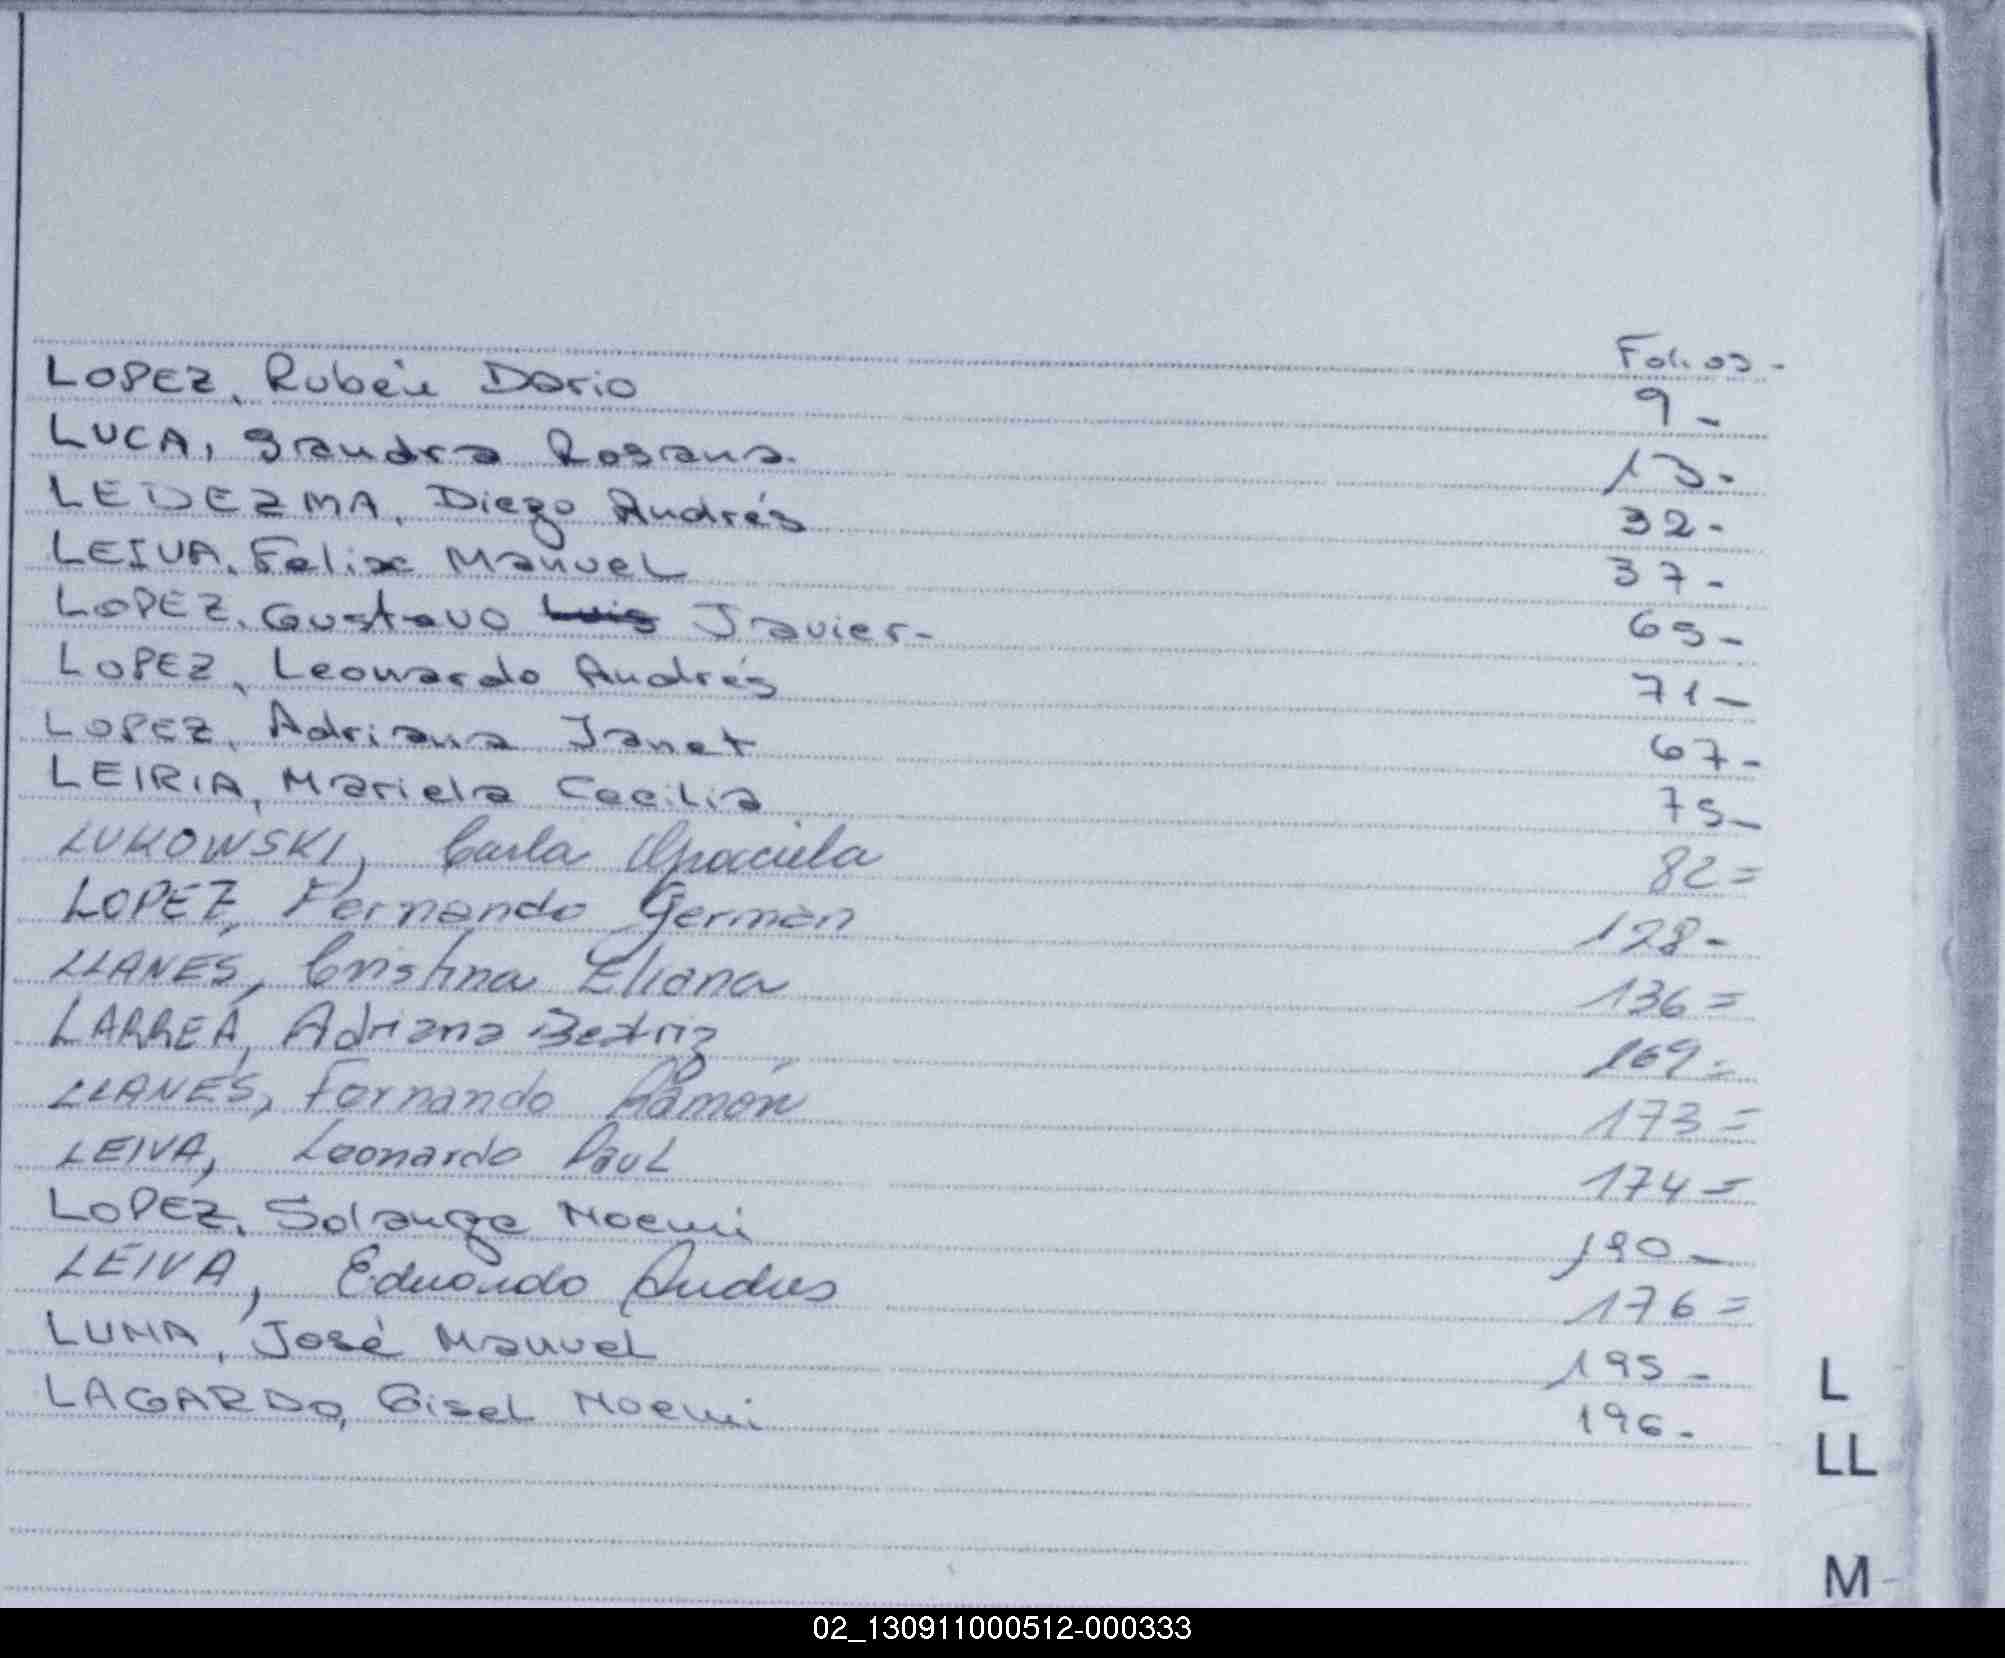 Folios -
LOPEZ, Rubén Dario 9 -
LUCA, Sandra Rosana. 13 -
LEDEZMA, Diego Andrés 32 -
LEIVA, Felix Manuel 37 -
LOPEZ, Gustavo Luis Javier - 65 -
LOPEZ, Leonardo Andrés 71 -
LOPEZ, Adriana Janet 67 -
LEIRIA, Mariela Cecilia 75 -
LUKOWSKI, Carla Graciela 82 =
LOPEZ, Fernando Germán 128 -
LLANES, Cristina Eliana 136 =
LARREA, Adriana Beatriz 169 =
LLANES, Fernando Ramón 173 =
LEIVA, Leonardo Paul 174 =
LOPEZ, Solange Noemi 190 -
LEIVA, Eduardo Andres 176 =
LUNA, José Manuel 195 -
LAGARDO, Gisel Noemi 196 -
L
LL
M
02_130911000512-000333